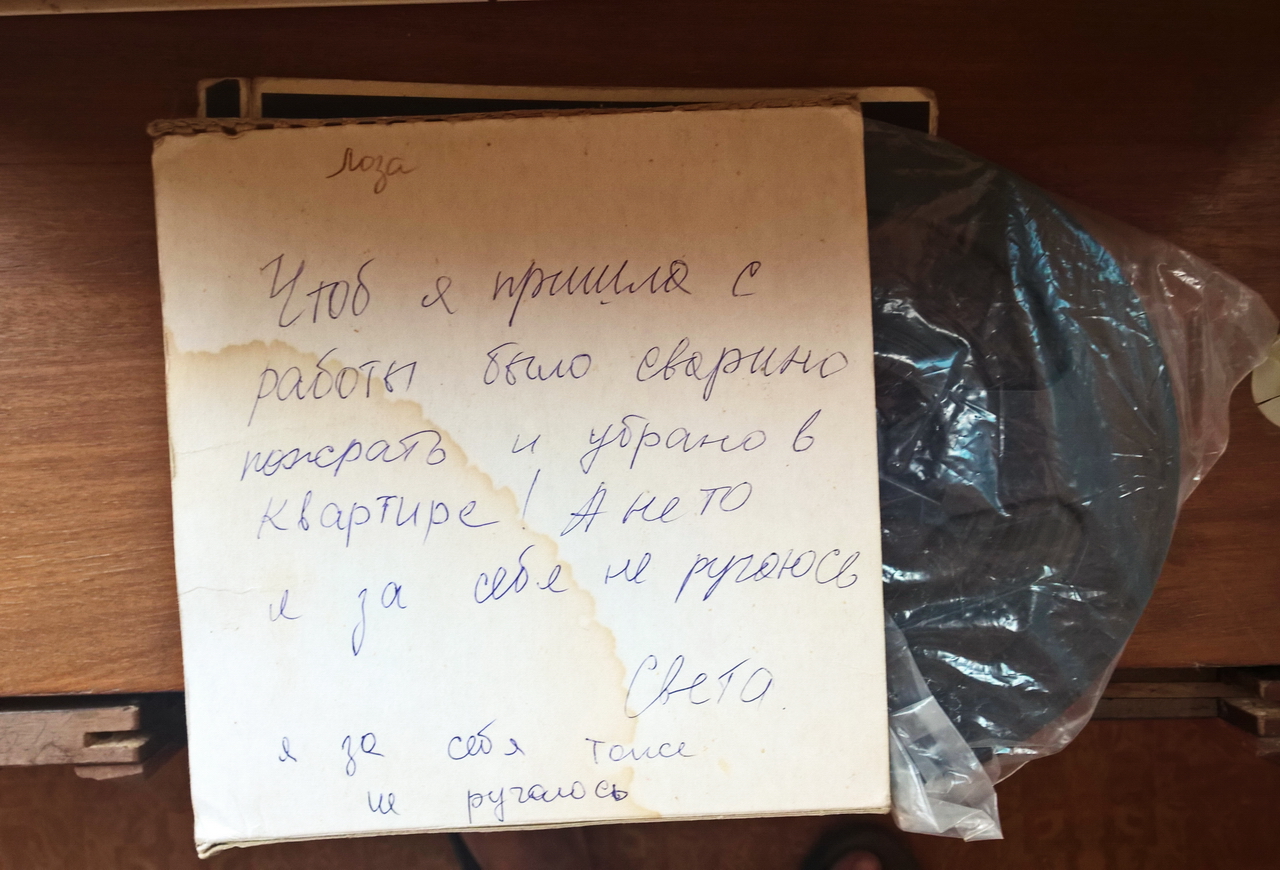 Лоза
Чтоб я пришла с
работы было сварино
пожрать и убрано в
квартире! А не то
я за себя не ругаюсь
Света.
я за себя тоже
не ругаюсь